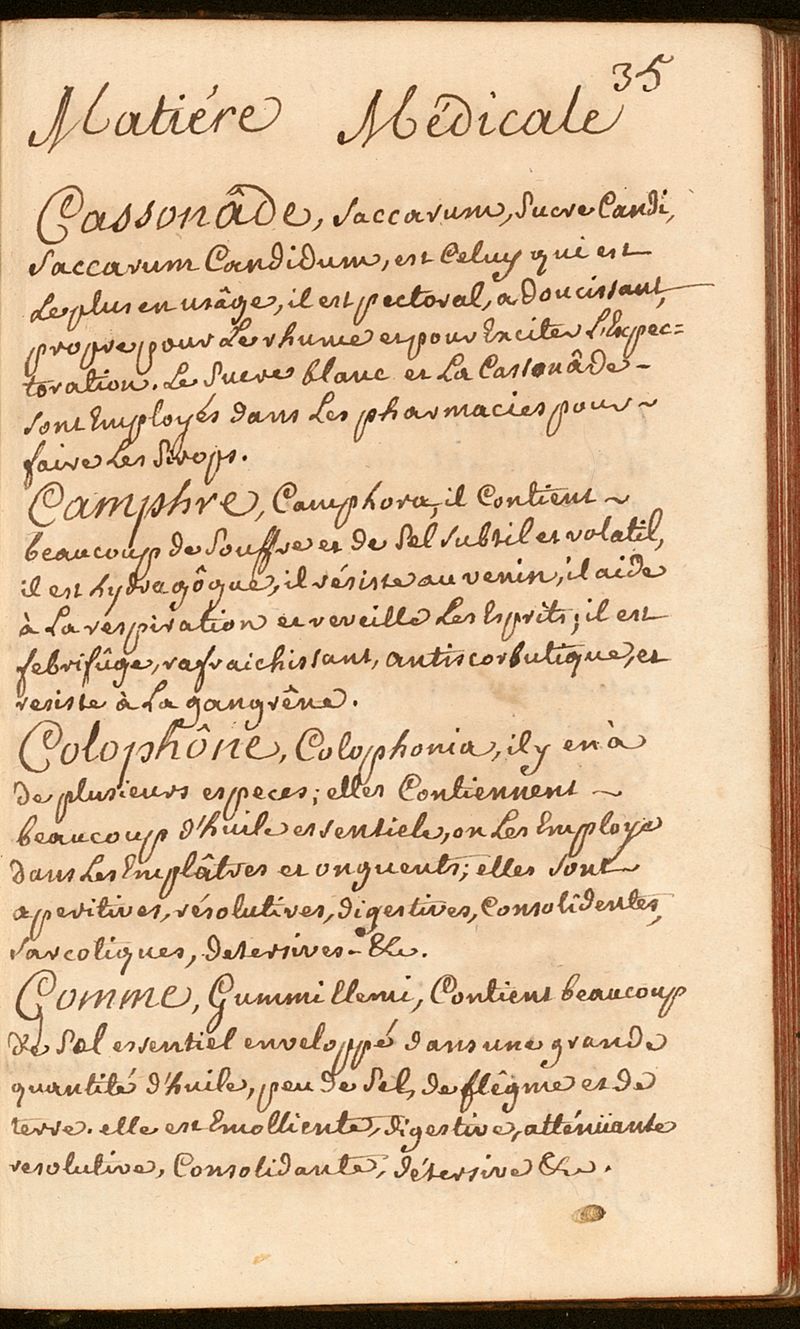 35
Matiére Médicale
Cassonâde, Saccarum, Sucre Candi,
Saccarum Candidum, est Celuy qui est
Le plus en usâge, il est pectoral, adoucissant,
propre pour Le rhume et pour Exciter L'Expec=
toration. Le Sucre blanc et La Cassonâde -
sont Employés dans Les pharmacies pour ~
faire Les Sirops.
Camphre, Camphora, il Contient ~
beaucoup de Souffre et de Sel subtil et volatil,
il est hydragôgue, il résiste au venin, il aide
à La respiration et reveille Les Esprits; il est
febrifûge, rafraichissant, antiscorbutique, et
resiste à La gangrêne.
Colophône, Colophonia, il y en à
de plusieurs especes; elles Contiennent ~
beaucoup d'huile essentiele, on Les Employe
dans Les Emplâtres et onguents; elles sont
aperitives, résolutives, digestives, Consolîdentes,
sarcotiques, detersives - &c.
Gomme, Gummi Elemi, Contient beaucoup
de Sel essentiel enveloppé dans une grande
quantité d'huile, peu de Sel, de flêgme et de
terre. elle est Emolliente, digestive, atténüante
resolutive, Consolidante, détersive &c.